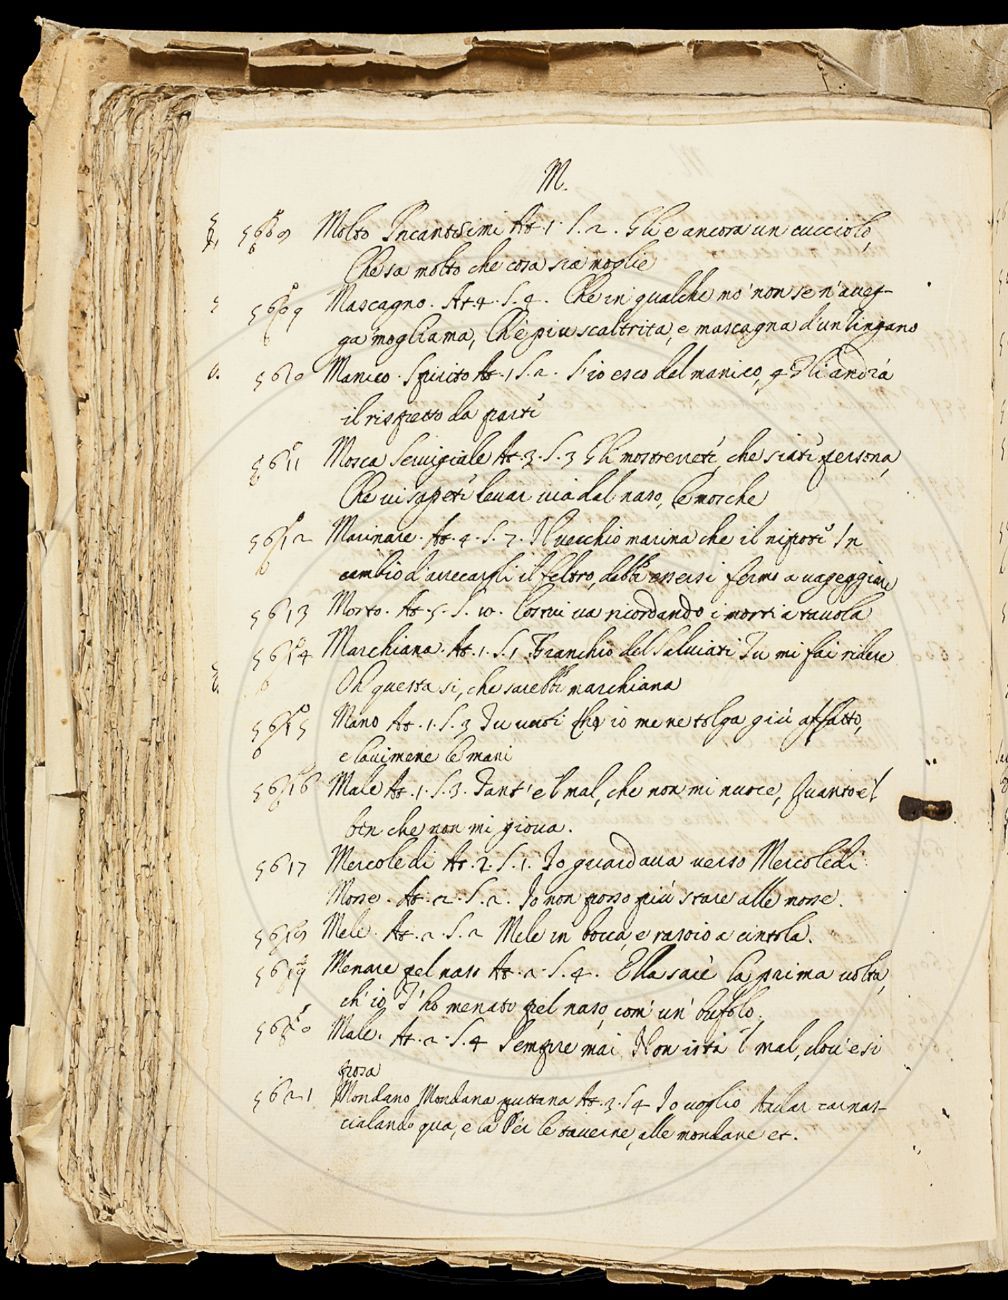 M.
5609 Molto Incantesimi At. 1. S. 2. Gli è ancora un cucciolo,
Che sa molto che cosa sia moglie
5609 Mascagno. At. 4. S. 4. Che in qualche mo' non se n'aveg-
ga mogliama, Ch'è piu scaltrita, e mascagna d'un lingano
5610 Manico. Spirito At. 1 S. 2. S'io esco del manico, Gli andrà
il rispetto da parte
5611 Mosca Servigiale At. 3. S. 3 Gli mostrerretè, che siate persona,
Che vi sapete levar via dal naso, le mosche
5612 Marinare. At. 4. S. 7. Il vecchio marina che il nipote In
cambio d'arrecargli il feltro, debbe essersi fermo a vageggiare
5613 Morto. At. 5. S. 10. Costui va ricordando i morti a tavola
5614 Marchiana. At. 1. S. 1 Granchio del Salviati Tu mi fai ridere
Oh questa si, che sarebbe marchiana
5615 Mano At. 1. S. 3 Tu vuoi ch'io me ne tolga giù affatto,
e lavimene le mani
5616 Male At. 1. S. 3. Tant'è 'l mal, che non mi nuoce, Quanto è 'l
ben che non mi giova.
5617 Mercoledi At. 2. S. 1. Io guardava verso Mercoledi
Mosse. At. 2. S. 2. Io non posso più stare alle mosse.
5618 Mele. At. 2. S. 2 Mele in bocca, e rasoio a cintola.
5619 Menare pel naso At. 2. S. 4. Ella sare' la prima volta,
ch'io T'ho menato pel naso, com' un' bufolo.
5620 Male. At. 2. S. 4 Sempre mai Non istà 'l mal, dov' e si
posa
5621 Mondano Mondana puttana At. 3. S 4 Io voglio andar carnas-
cialando qua, e la Per le taverne, alle mondane et.